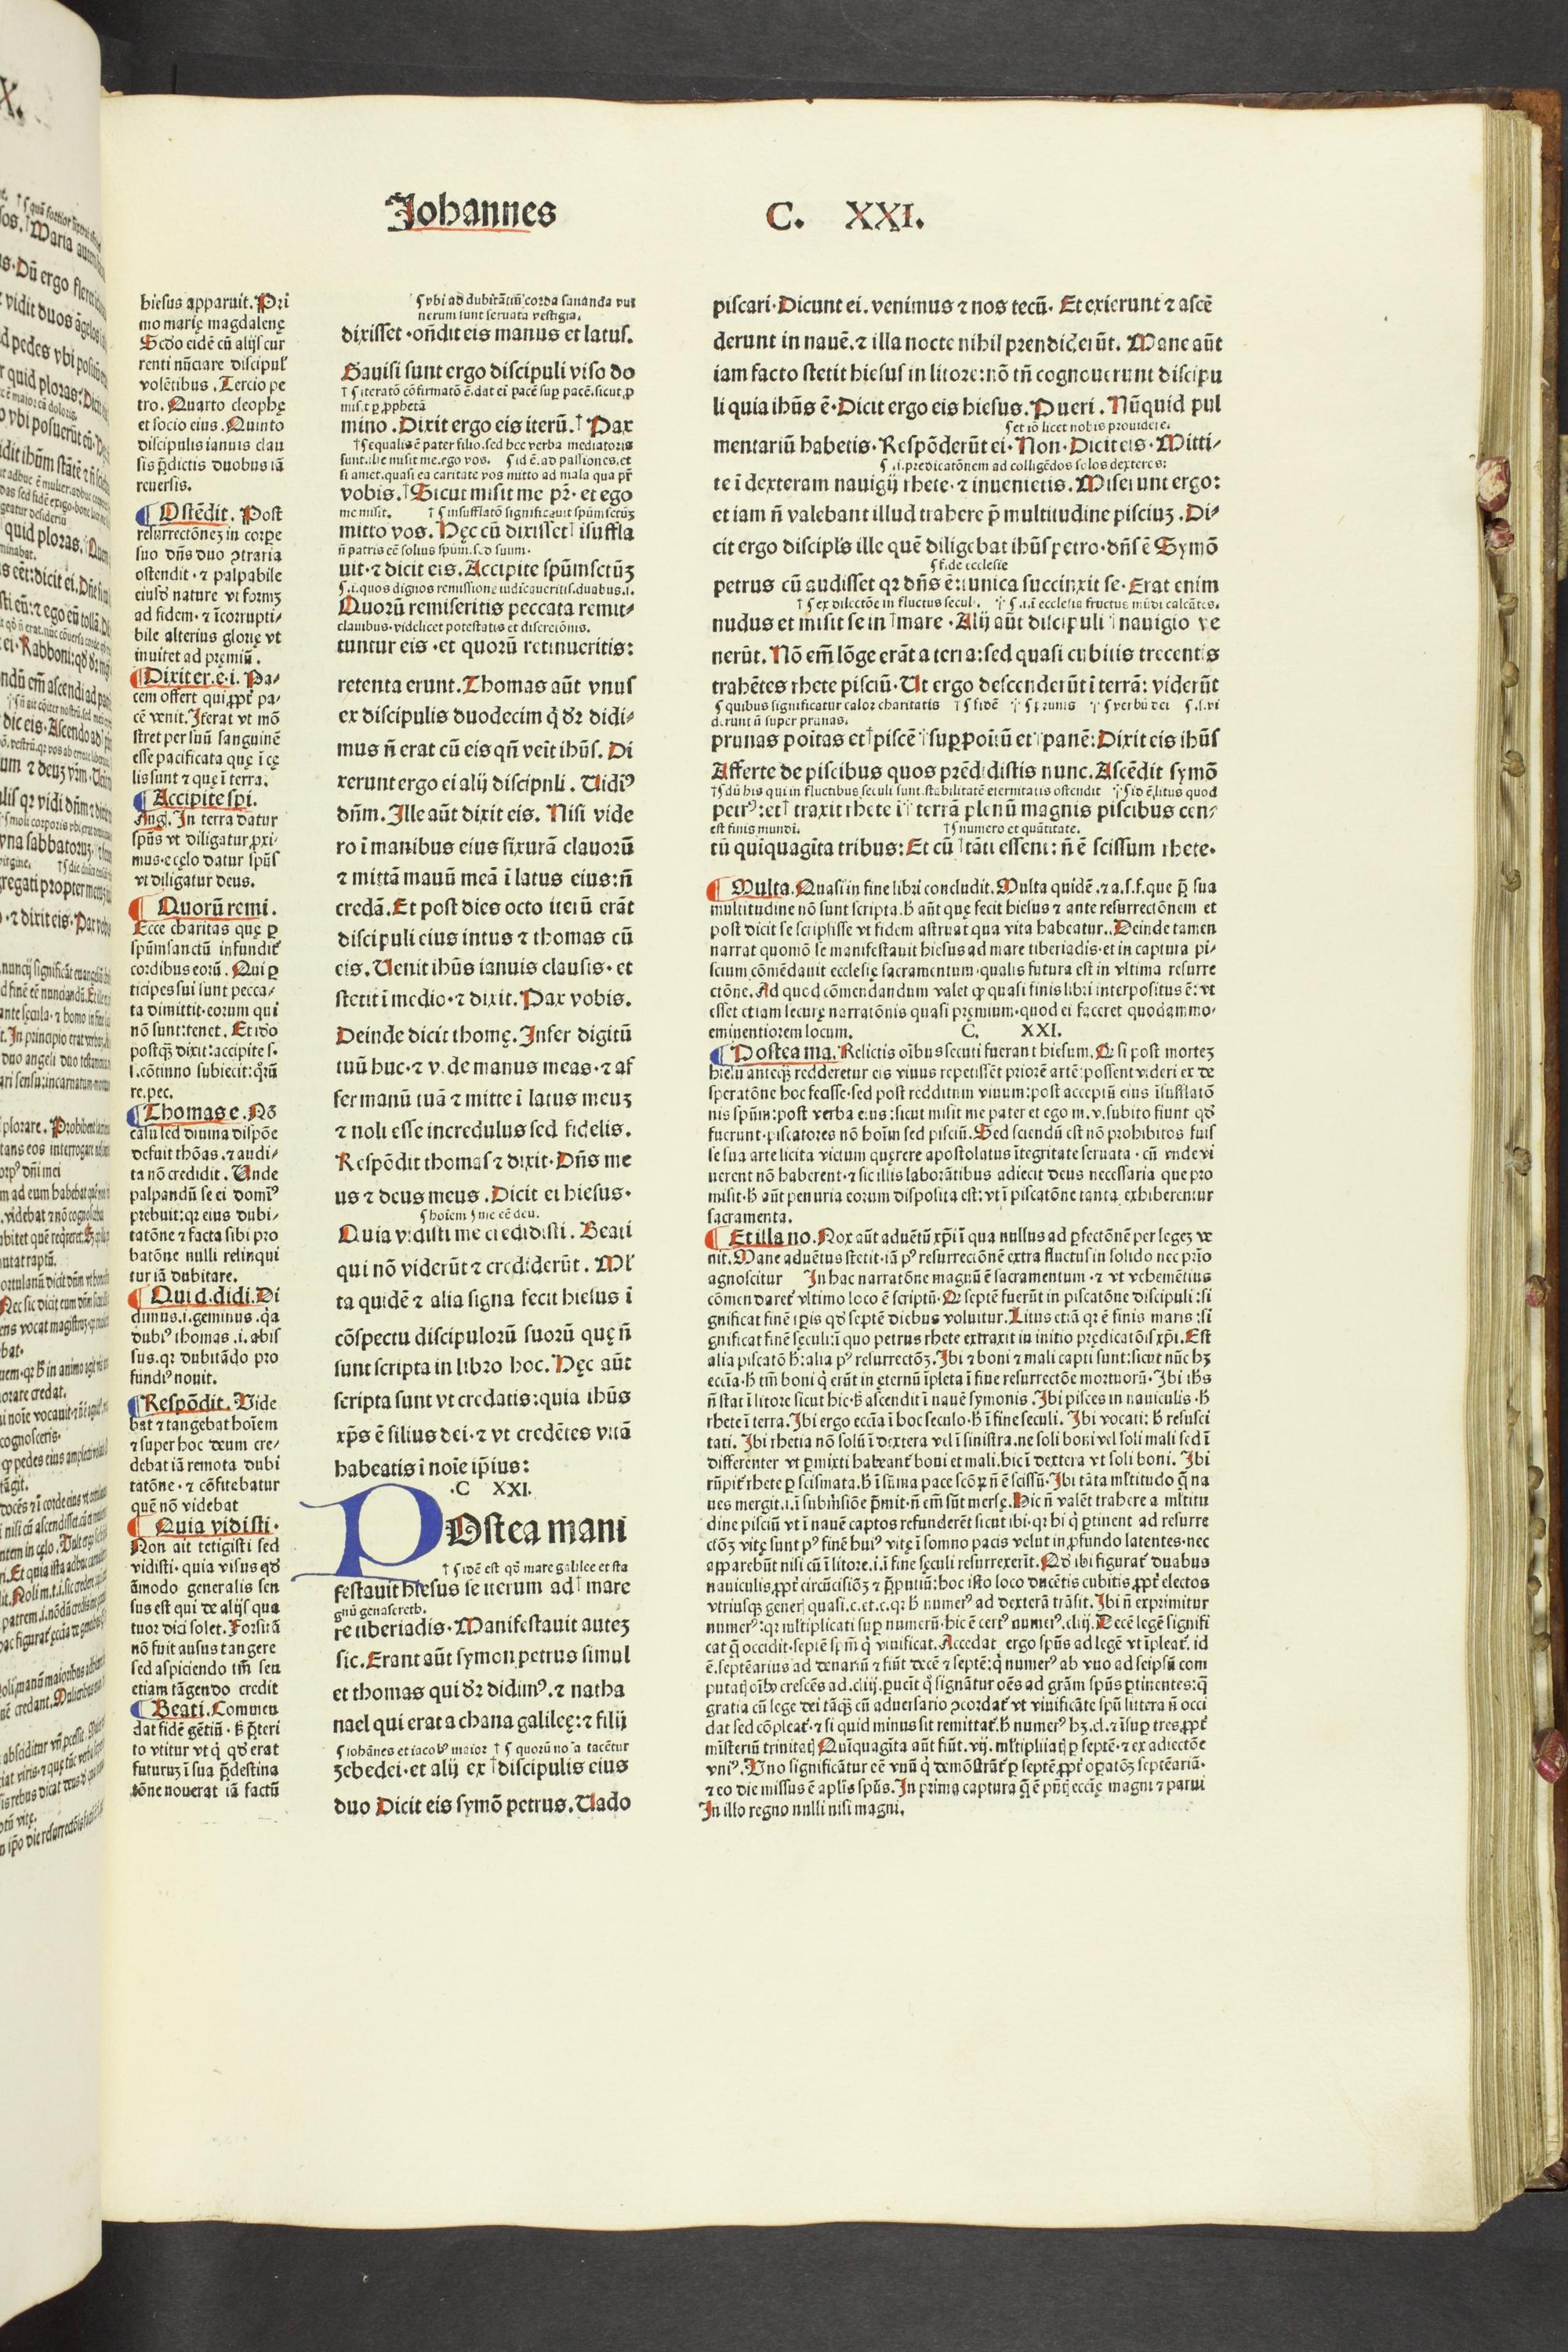 Johannes
C. XXI.
hiesus apparuit. Pri
mo marię magdalenę
Scdo eidē cū alijs cur
renti nūciare discipul'
volētibus. Tercio pe
tro. Quarto cleophę
et socio eius. Quinto
discipulis ianuis clau
sis p̄dictis duobus iā
reuersis.
¶ Ostēdit. Post
resurrectōnez in corpe
suo dn̄s duo ꝯtraria
ostendit ⁊ palpabile
eiusd nature vt formz
ad fidem ⁊ īcorrupti-
bile alterius glorię vt
inuitet ad pręmiū.
¶ Dixit er. e. i. Pa-
cem offert qui ꝓpt' pa-
cē venit. Iterat vt mō
stret per suū sanguinē
esse pacificata quę ī cę
lis sunt ⁊ quę ī terra.
¶ Accipite spi.
Aug. In terra datur
spūs vt diligatur ꝓxi-
mus. e cęlo datur spūs
vt diligatur deus.
¶ Quorū remi.
Ecce charitas quę ꝑ
spūmsanctū infundit'
cordibus eorū. Qui ꝑ
ticipes sui sunt pecca-
ta dimittit. eorum qui
nō sunt: tenet. Et ido
postqz dixit: accipite s.
s. cōtinno subiecit: q̄rū
re. pec.
¶ Thomas e. Nō
casu sed diuina dispōe
defuit thōas. ⁊ audi-
ta nō credidit. Unde
palpandū se ei domi⁹
prebuit: qr eius dubi-
tatōne ⁊ facta sibi pro
batōne nulli relinqui
tur iā dubitare.
¶ Qui d. didi. Di
dimus. i. geminus. q̇a
dubi⁹ thomas. i. abis
sus. qr dubitādo pro
fundi⁹ nouit.
¶ Respōdit. Vide
bat ⁊ tangebat hoīem
⁊ super hoc deum cre-
debat iā remota dubi
tatōne. ⁊ cōfitebatur
quē nō videbat
¶ Quia vidisti.
Non ait tetigisti sed
vidisti. quia visus qd
āmodo generalis sen
sus est qui de alijs qua
tuor dici solet. Forsitā
nō fuit ausus tangere
sed aspiciendo tm̄ seu
etiam tāgendo credit
¶ Beati. Commen
dat fidē gētiū. ꝗ p̄teri
to vtitur vt q̇ qd erat
futuruz ī sua p̄destina
tōne nouerat iā factū
¶ vbi ad dubitātiū corda sananda vul
nerum sunt seruata vestigia.
dixisset. on̄dit eis manus et latus.
Gauisi sunt ergo discipuli viso do
† ¶ iteratō cōfirmatō ē. dat eī pacē sup pacē. sicut ꝓ
misit ꝑ ꝓphetā
mino. Dixit ergo eis iterū. † Pax
† ¶ equalis ē pater filio. sed hec verba mediatoris
sunt. ille misit me. ego vos. ¶ id ē. ad passiones. et
si amet. quasi ea caritate vos mitto ad mala qua pr̄
vobis. † Sicut misit me pr̄. et ego
me misit. † ¶ insufflatō significauit spūmsctūz
mitto vos. Hęc cū dixisset † īsuffla
n̄ patris eē solius spūm. sed suum.
uit. ⁊ dicit eis. Accipite spūmsctūz
¶ .i. quos dignos remissione iudicaueritis. duabus. s.
Quorū remiseritis peccata remit-
clauibus. videlicet potestatis et discretōnis.
tuntur eis. et quorū retinueritis:
retenta erunt. Thomas aūt vnus
ex discipulis duodecim q̇ dr̄ didi-
mus n̄ erat cū eis qn̄ veīt ihūs. Di
xerunt ergo ei alij discipnli. Uidi⁹
dn̄m. Ille aūt dixit eis. Nisi vide
ro ī manibus eius fixurā clauorū
⁊ mittā mauū meā ī latus eius: n̄
credā. Et post dies octo iterū erāt
discipuli eius intus ⁊ thomas cū
eis. Uenit ihūs ianuis clausis. et
stetit ī medio. ⁊ dixit. Pax vobis.
Deinde dicit thomę. Infer digitū
tuū huc. ⁊ vide manus meas. ⁊ af
fer manū tuā ⁊ mitte ī latus meuz
⁊ noli esse incredulus sed fidelis.
Respōdit thomas ⁊ dixit. Dn̄s me
us ⁊ deus meus. Dicit ei hiesus.
¶ hoīem ¶ me eē deū.
Quia vidisti me credidisti. Beati
qui nō viderūt ⁊ crediderūt. Ml'
ta quidē ⁊ alia signa fecit hiesus ī
cōspectu discipulorū suorū quę n̄
sunt scripta in libro hoc. Hęc aūt
scripta sunt vt credatis: quia ihūs
xp̄s ē filius dei. ⁊ vt credētes vitā
habeatis ī noīe ip̄ius:
.C XXI.
POstea mani
† ¶ idē est qd mare galilee et sta
festauit hiesus se iterum ad † mare
gnū genasereth.
re tiberiadis. Manifestauit autez
sic. Erant aūt symon petrus simul
et thomas qui dr̄ didim⁹. ⁊ natha
nael qui erat a chana galileę: ⁊ filij
¶ iohānes et iacob⁹ maior † ¶ quorū noīa tacētur
zebedei. et alij ex † discipulis eius
duo Dicit eis symō petrus. Uado
piscari. Dicunt ei. venimus ⁊ nos tecū. Et exierunt ⁊ ascē
derunt in nauē. ⁊ illa nocte nihil prendiderūt. Mane aūt
iam facto stetit hiesus in litore: nō tn̄ cognouerunt discipu
li quia ihūs ē. Dicit ergo eis hiesus. Pueri. Nūquid pul
¶ et iō licet nobis prouidere.
mentariū habetis. Respōderūt ei. Non. Dicit eis. Mitti-
¶ .i. predicatōnem ad colligēdos solos dexteros:
te ī dexteram nauigij rhete. ⁊ inuenietis. Miserunt ergo:
et iam n̄ valebant illud trahere p̄ multitudine pisciuz. Di-
cit ergo discipl's ille quē diligebat ihūs petro. dn̄s ē Symō
¶ s. de ecclesie
petrus cū audisset qz dn̄s ē: tunica succinxit se. Erat enim
† ¶ ex dilectōe in fluctus seculi. ¶ .i. ī ecclesia fluctus mūdi calcātes.
nudus et misit se in † mare. Alij aūt discipuli nauigio ve
nerūt. Nō em̄ lōge erāt a terra: sed quasi cubitis trecentis
trahētes rhete pisciū. Ut ergo descenderūt ī terrā: viderūt
¶ quibus significatur calor charitatis † ¶ fidē ¶ prunis ¶ verbū dei ¶ .s. vi
derunt ū super prunas.
prunas poītas et † piscē † suꝑpoitū et † panē: Dixit eis ihūs
Afferte de piscibus quos prēdidistis nunc. Ascēdit symō
† ¶ dū his qui in fluctibus seculi sunt. stabilitatē eternitatis ostendit ¶ id ē. litus quod
petr⁹: et † traxit rhete ī † terrā plenū magnis piscibus cen-
est finis mundi. † ¶ numero et quātitate.
tū quīquagīta tribus: Et cū † tāti essent: n̄ ē scissum rhete.
¶ Multa. Quasi in fine libri concludit. Multa quidē. ⁊ a. s. f. que p̄ sua
multitudine nō sunt scripta. h̄ aūt quę fecit hiesus ⁊ ante resurrectōnem et
post dicit se scripsisse vt fidem astruat qua vita habeatur.. Deinde tamen
narrat quomō se manifestauit hiesus ad mare tiberiadis. et in captura pi-
scium cōmēdauit ecclesię sacramentum. qualis futura est in vltima resurre
ctōne. Ad quod cōmendandum valet ꝙ quasi finis libri interpositus ē: vt
esset etiam secutę narratōnis quasi pręmium. quod ei faceret quodammo-
eminentiorem locum. C. XXI.
¶ Postea ma. Relictis oībus secuti fuerant hiesum. Qr si post mortez
hiesu anteqz redderetur eis viuus repetissēt priorē artē: possent videri ex de
speratōne hoc fecisse. sed post redditum viuum: post acceptū eius īsufflatō
nis spūm: post verba eius: sicut misit me pater et ego m. v. subito fiunt qd
fuerunt. piscatores nō hoīm sed pisciū. Sed sciendū est nō prohibitos fuis
se sua arte licita victum quęrere apostolatus ītegritate seruata. cū vnde vi
uerent nō haberent. ⁊ sic illis laborātibus adiecit deus necessaria que pro
misit. h̄ aūt penuria eorum disposita est: vt ī piscatōne tanta exhiberentur
sacramenta.
¶ Et illa no. Nox aūt aduētū xp̄i ī qua nullus ad ꝑfectōnē per legez ve
nit. Mane aduētus stetit. iā p⁹ resurrectōnē extra fluctus in solido nec prīo
agnoscitur In hac narratōne magnū ē sacramentum. ⁊ vt vehemētius
cōmendaret' vltimo loco ē scriptū. Qr septē fuerūt in piscatōne discipuli: si
gnificat finē tp̄is qd septē diebus voluitur. Litus etiā qr ē finis maris: si
gnificat finē sęculi: ī quo petrus rhete extraxit in initio prędicatōis xp̄i. Est
alia piscatō h̄: alia p⁹ resurrectōz. Ibi ⁊ boni ⁊ mali capti sunt: sicut nūc hz
eccīa. h̄ tm̄ boni q̇ erūt in ęternū īpleta ī fine resurrectōe mortuorū. Ibi ihs
n̄ stat ī litore sicut hic. ꝗ ascendit ī nauē symonis. Ibi pisces in nauiculis. h̄
rhete ī terra. Ibi ergo eccīa ī hoc seculo. h̄ ī fine seculi. Ibi vocati: h̄ resusci
tati. Ibi rhetia nō solū ī dextera vel ī sinistra. ne soli boni vel soli mali sed ī
differenter vt ꝑmixti habeant' boni et mali. hic ī dextera vt soli boni. Ibi
rūpit' rhete ꝑ scismata. h̄ ī sūma pace scōꝝ n̄ ē scissū. Ibi tāta ml'titudo q̄ na
ues mergit. i. ī submsiōe p̄mit. n̄ em̄ sūt mersę. Hic n̄ valēt trahere a ml'titu
dine pisciū vt ī nauē captos refunderēt sicut ibi. qr hi q̇ ꝑtinent ad resurre
ctōz vitę sunt p⁹ finē hui⁹ vitę ī somno pacis velut in ꝓfundo latentes. nec
apparebūt nisi cū ī litore. i. ī fine sęculi resurrexerīt. Qd ibi figurat' duabus
nauiculis ꝓpt' circūcisiōz ⁊ p̄putiū: hoc isto loco ducētis cubitis ꝓpt' electos
vtriusqz generꝭ quasi. c. et. c. qr h̄ numer⁹ ad dexterā trāsit. Ibi n̄ exprimitur
numer⁹: qr ml'tiplicati sup numerū. hic ē cert⁹ numer⁹. cliij. Decē legē signifi
cat q̄ occidit. septē spm̄ q̇ viuificat. Accedat ergo spūs ad legē vt īpleat'. id
ē. septēarius ad denariū ⁊ fiūt decē ⁊ septē: q̇ numer⁹ ab vno ad seipsū com
putatꝭ oībꝫ crescēs ad. cliij. ꝑueīt q̇ signātur oēs ad grām spūs ꝑtinentes: q̄
gratia cū lege dei tāqz cū aduersario ꝯcordat' vt viuificāte spū littera n̄ occi
dat sed cōpleat'. ⁊ si quid minus sit remittat'. h̄ numer⁹ hz. cl. ⁊ īsup tres ꝓpt'
mīsteriū trinitatꝭ Quīquagīta aūt fiūt. vij. ml'tipliatꝭ ꝑ septē. ⁊ ex adiectōe
vni⁹. Uno significātur eē vnū q̇ demōstrāt' ꝑ septē ꝓpt' oꝑatōz septēariā.
⁊ eo die missus ē aplīs spūs. In prima captura q̄ ē pn̄tꝭ eccīę magni ⁊ parui
In illo regno nulli nisi magni.